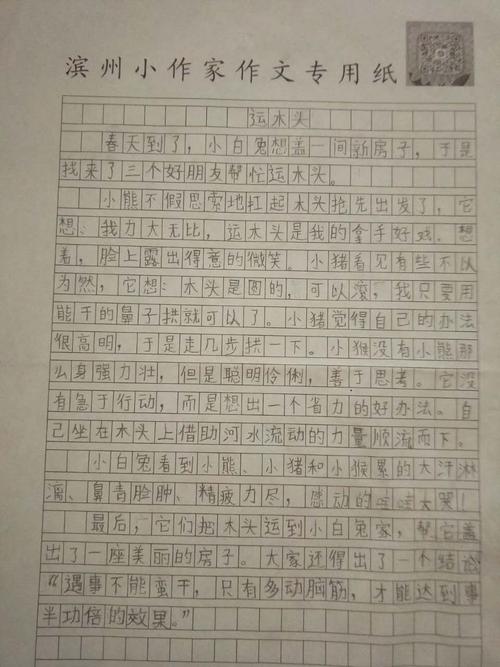 滨州小作家作文专用纸
运木头
春天到了，小白兔想盖一间新房子，于是
找来了三个好朋友帮忙运木头。
小熊不假思索地扛起木头抢先出发了，它
想：我力大无比，运木头是我的拿手好戏。想
着，脸上露出得意的微笑。小猪看见有些不以
为然，它想：木头是圆的，可以滚，我只要用
能干的鼻子拱就可以了。小猪觉得自己的办法
很高明，于是走几步拱一下。小猴没有小熊那
么身强力壮，但是聪明伶俐，善于思考。它没
有急于行动，而是想出一个省力的好办法。自
己坐在木头上借助河水流动的力量顺流而下。
小白兔看到小熊、小猪和小猴累的大汗淋
漓、鼻青脸肿、精疲力尽，感动的哇哇大哭！
最后，它们把木头运到小白兔家，帮它盖
出了一座美丽的房子。大家还得出了一个结论
“遇事不能蛮干，只有多动脑筋，才能达到事
半功倍的效果。”